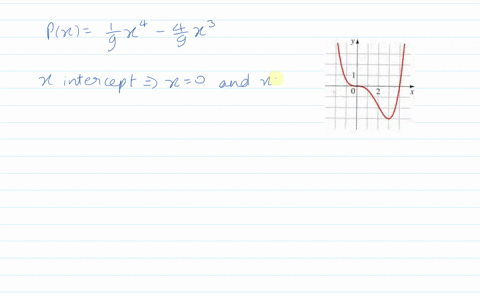 P(x) = 1/9 x⁴ - 4/9 x³
x intercept ⇒ x=0 and x
y
1
0 2 x